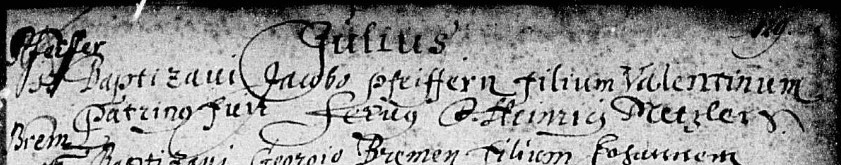 Julius 119.
Pfeiffer
Baptizavi Jacobo Pfeiffern filium Valentinum
Patrinus fuit Heinrig Metzlers
Brem
Baptizavi Georgio Bremen filium Johannem